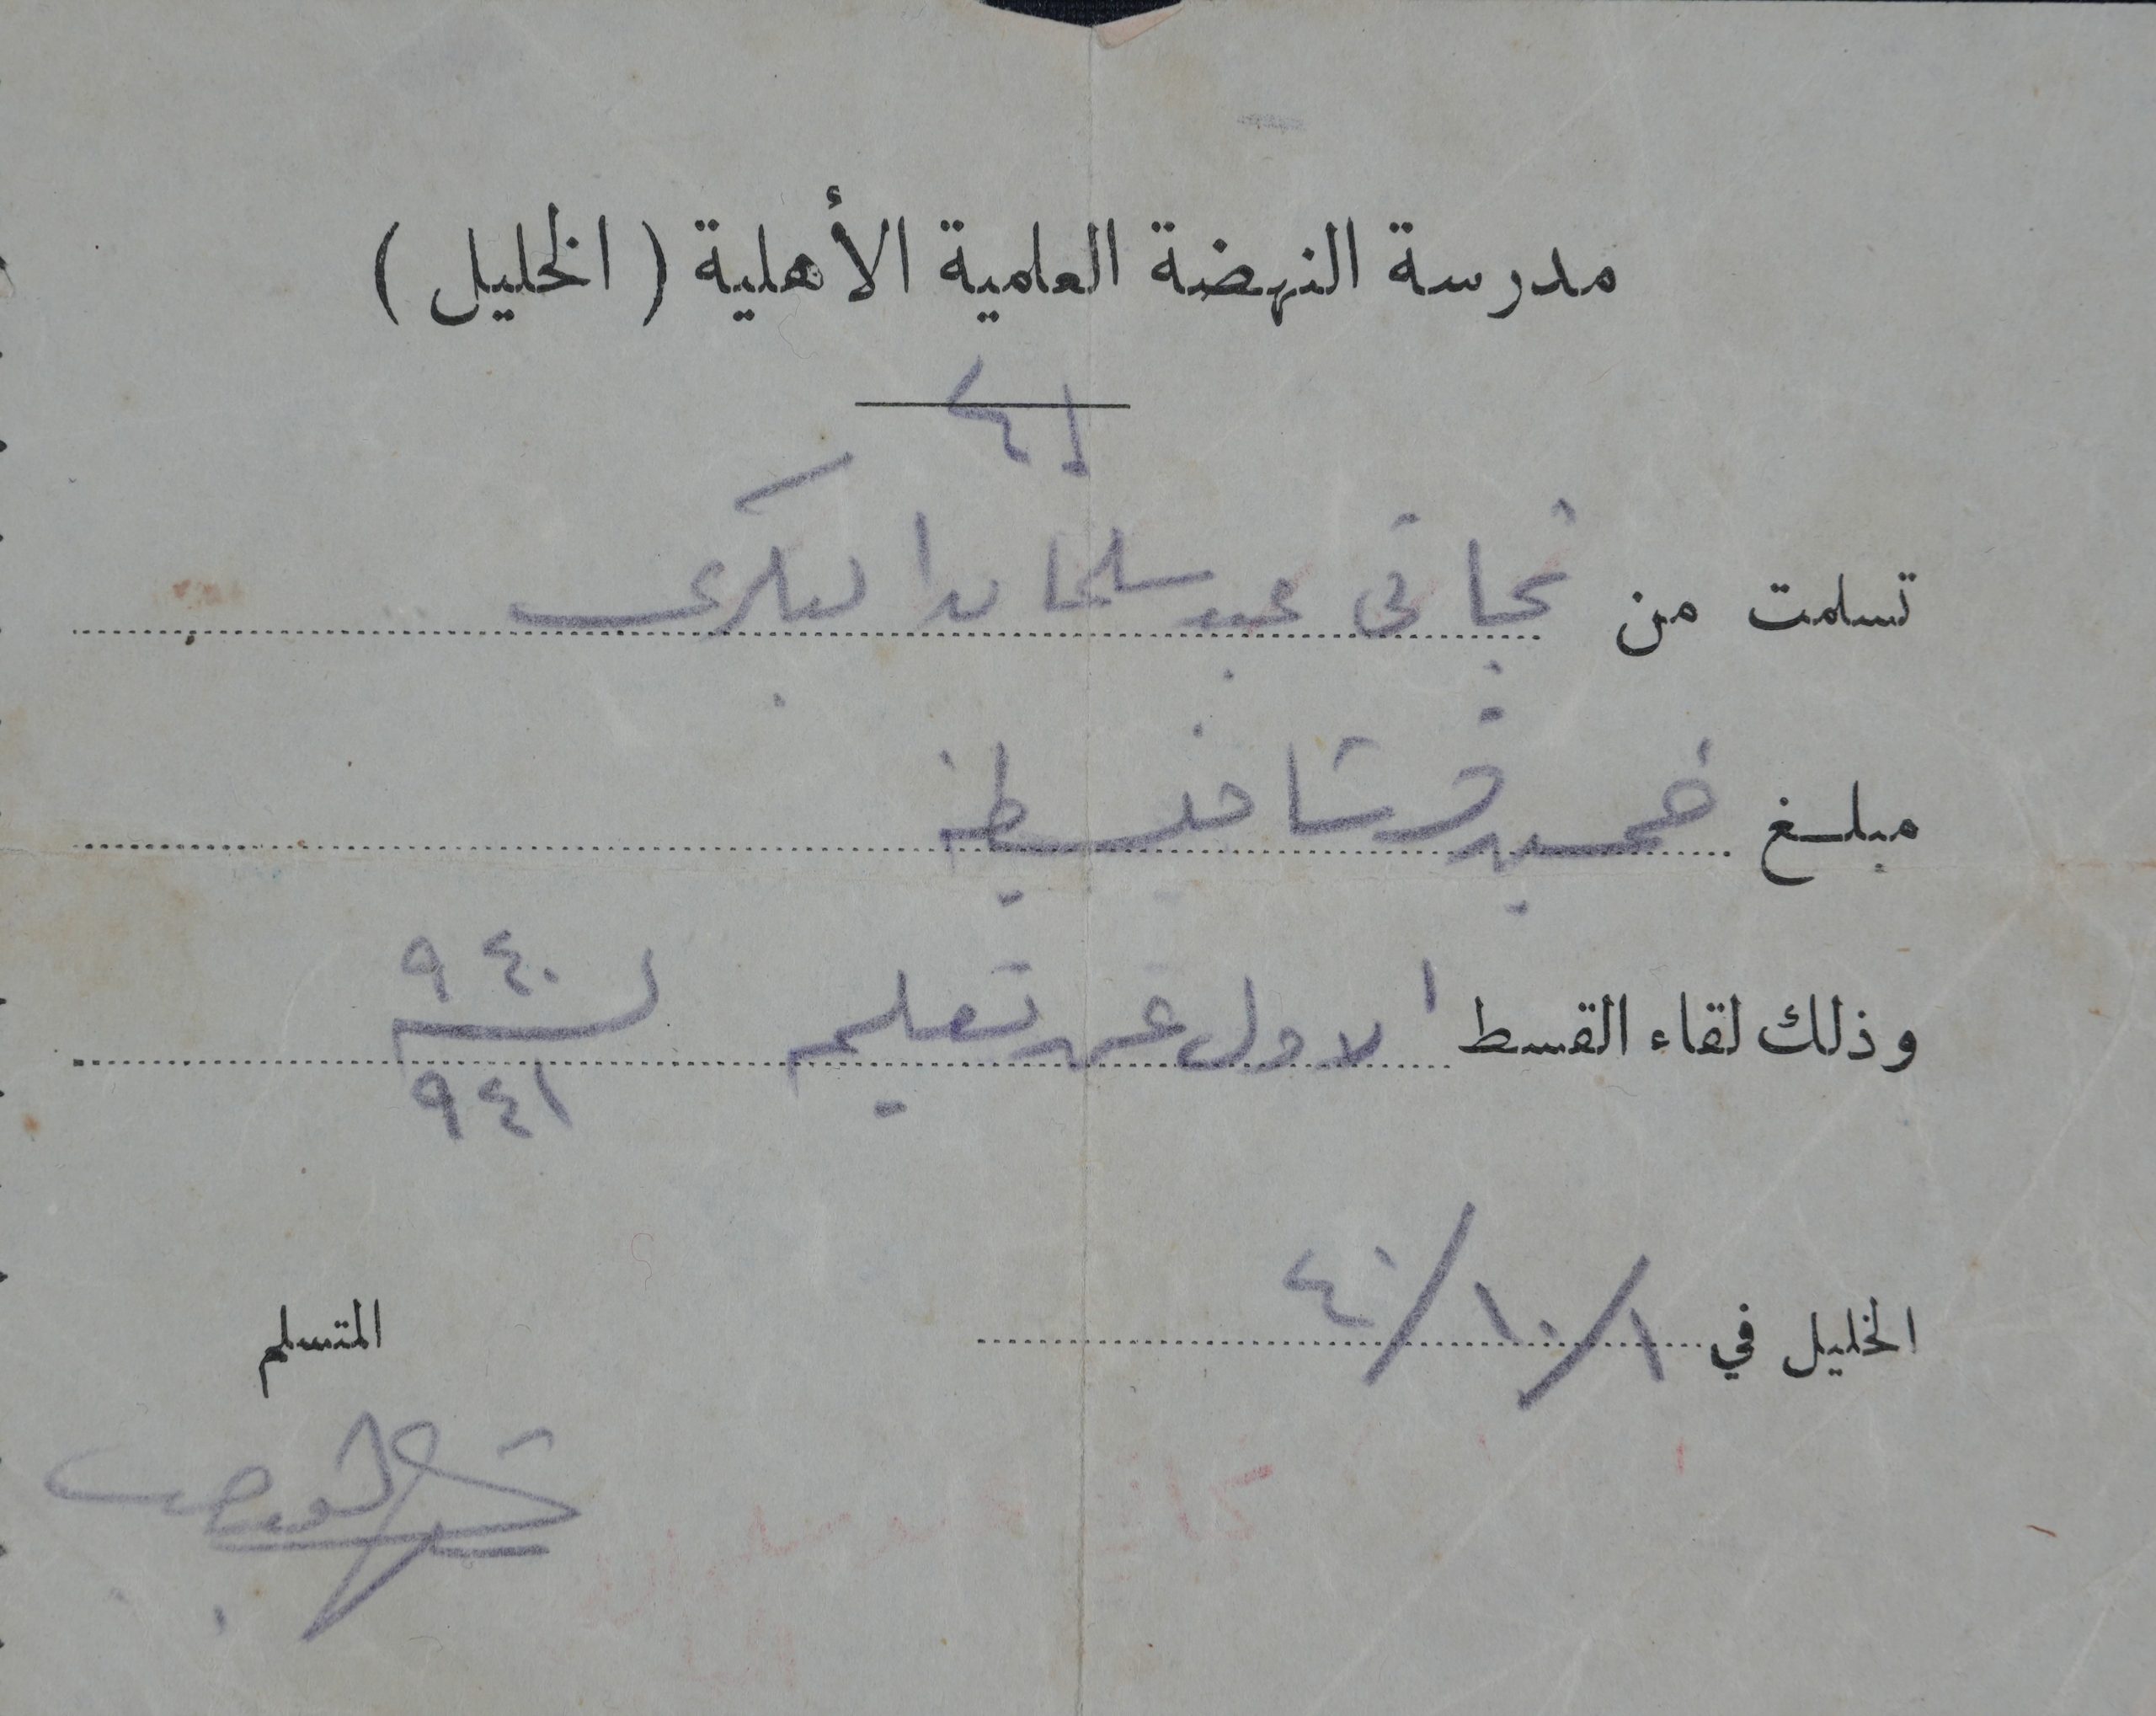 مدرسة النهضة العلمية الأهلية ( الخليل )
٤١
تسلمت من نجاتي عبد سلطان البكري
مبلغ خمسين قرشا فلسطينيا
وذلك لقاء القسط الاول عن تعليم لسنة ٩٤٠
٩٤١
الخليل في ١/١٠/٤٠
المتسلم